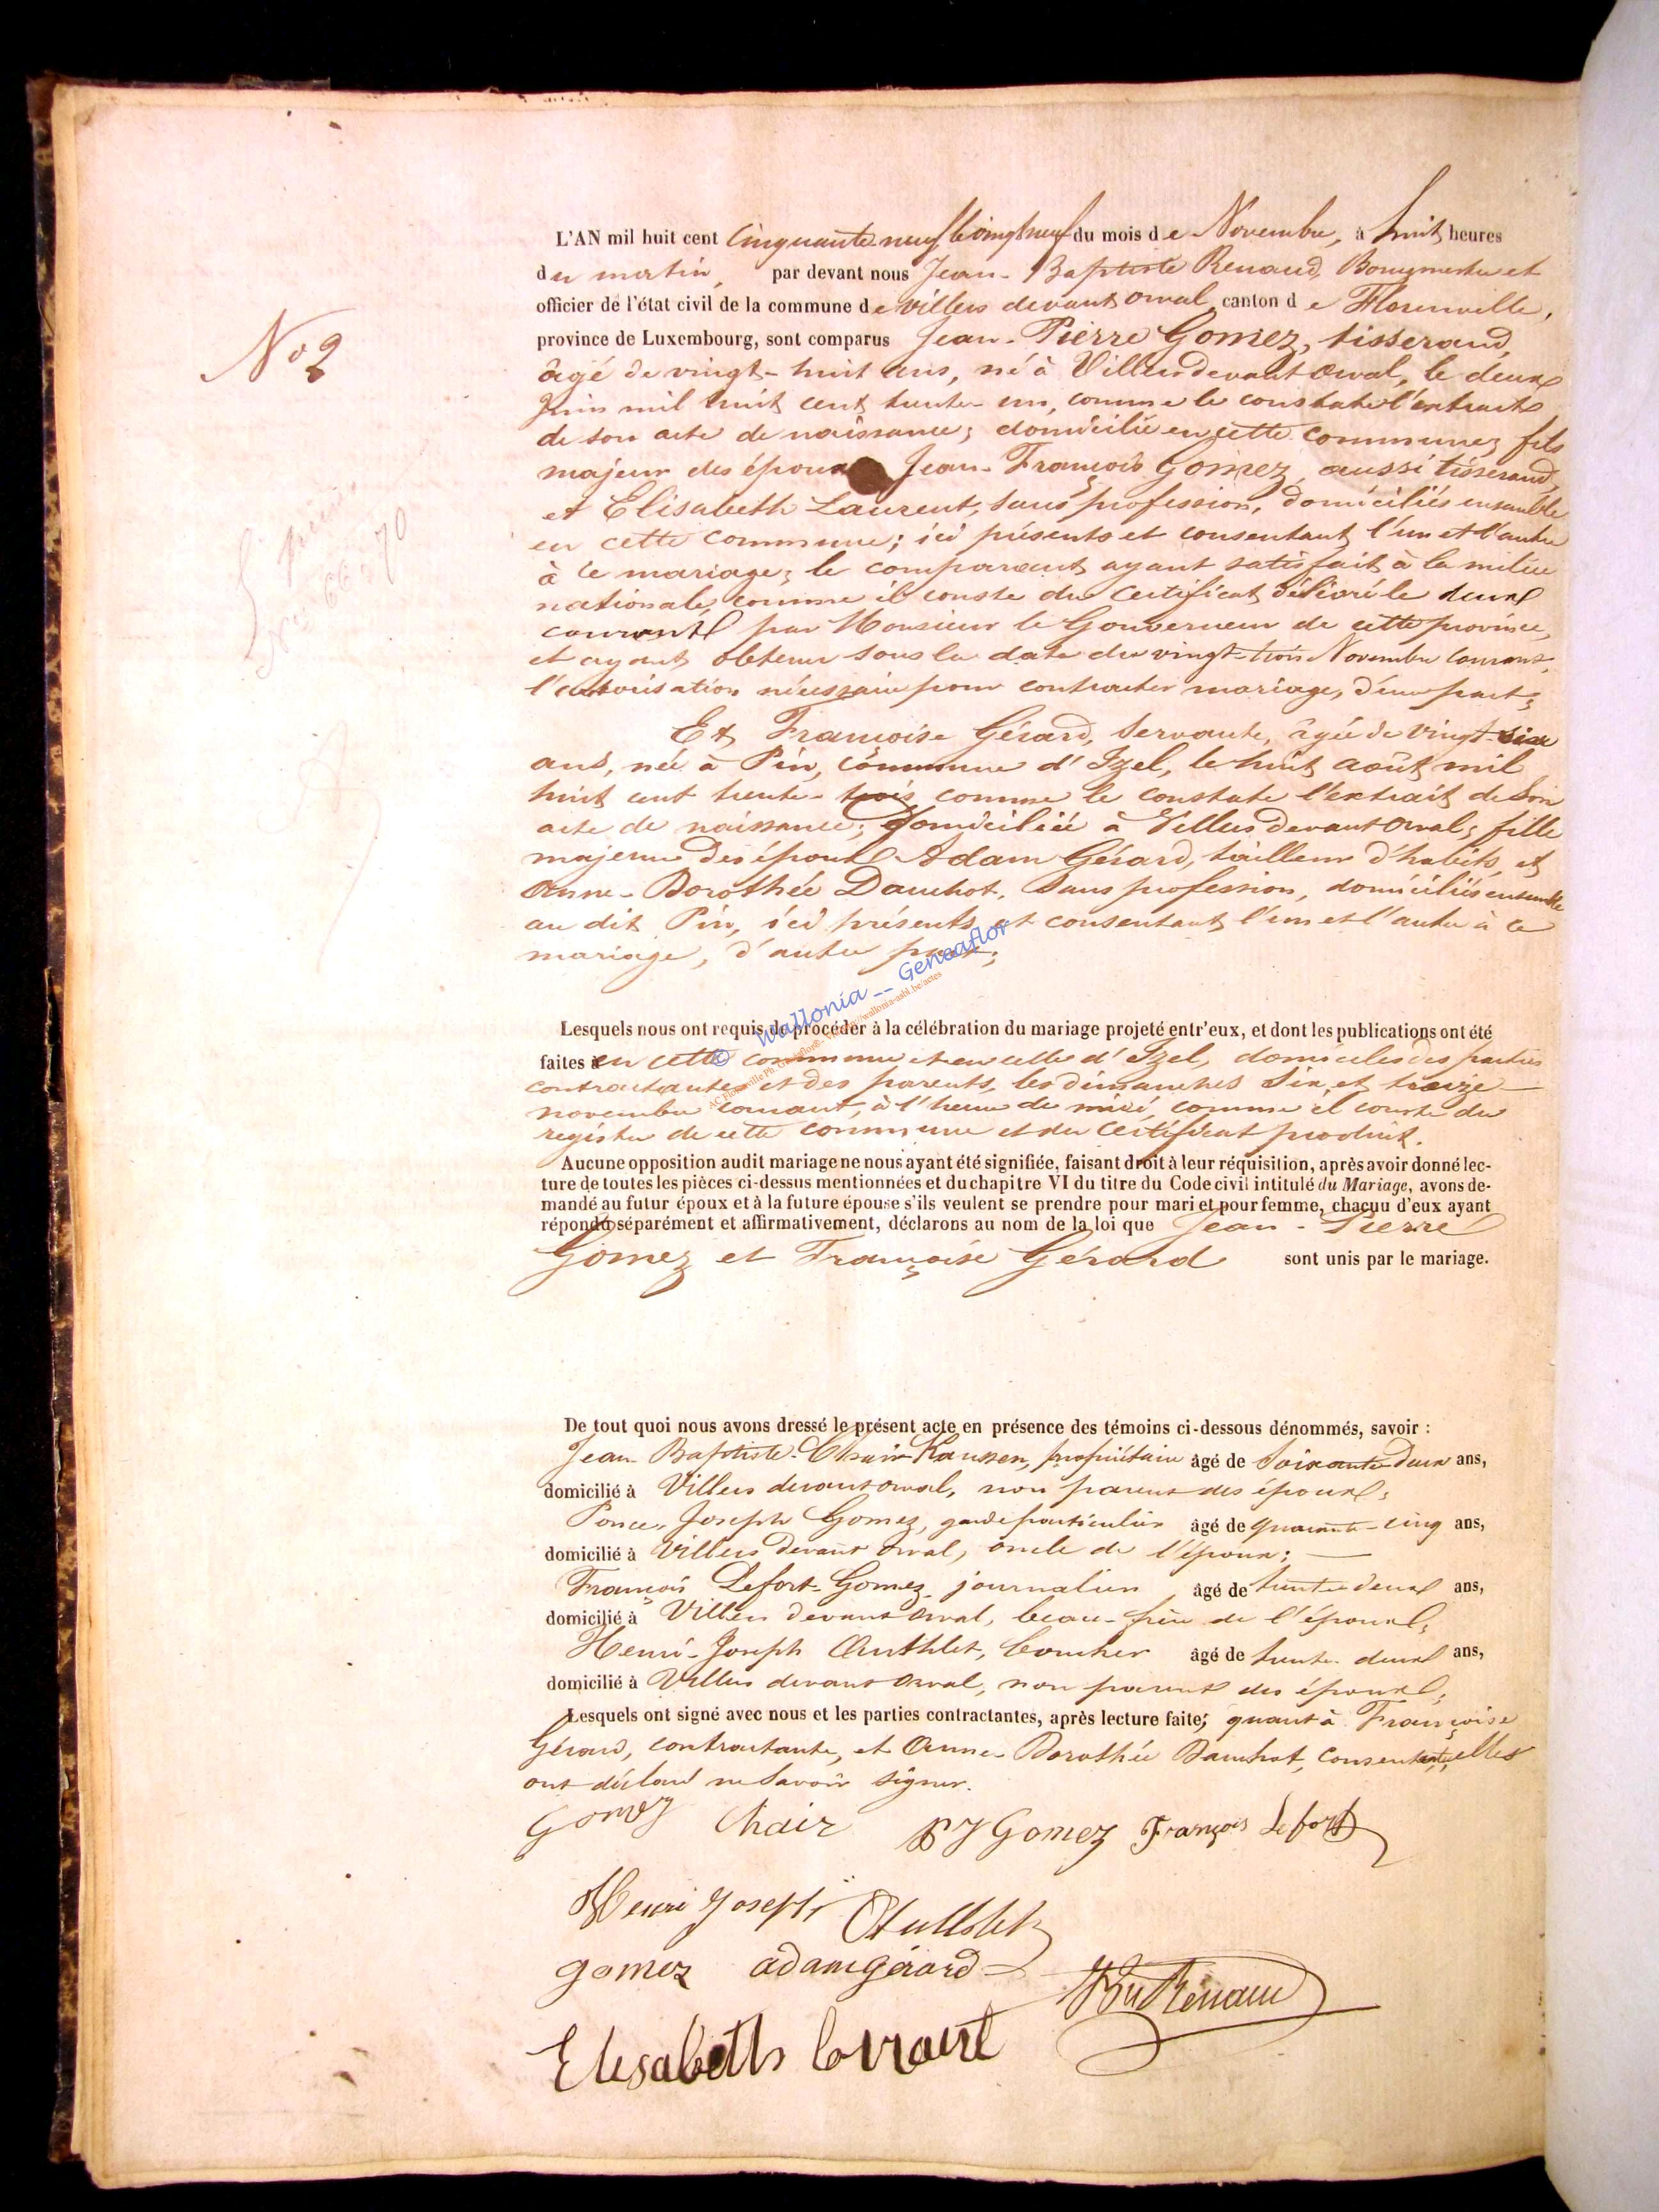 L'AN mil huit cent Cinquante neuf le vingt neuf du mois de Novembre, à huit heures
du matin, par devant nous Jean-Baptiste Renaud, Bourgmestre et
officier de l'état civil de la commune de Villers devant orval, canton de Florenville,
province de Luxembourg, sont comparus Jean-Pierre Gomez, tisserand,
No 2
âgé de vingt-huit ans, né à Villers devant orval, le deux
Juin mil huit cent trente-un, comme le constate l'extrait
de son acte de naissance; domicilié en cette commune; fils
majeur des époux Jean-François Gomez, aussi tisserand,
et Elisabeth Laurent, sans profession, domiciliés ensemble
en cette commune; ici présents et consentant l'un et l'autre
à ce mariage; le comparant ayant satisfait à la milice
nationale, comme il conste du certificat délivré le deux
courant par Monsieur le Gouverneur de cette province,
et ayant obtenu sous la date du vingt-trois Novembre courant,
l'autorisation nécessaire pour contracter mariage, d'une part;
Nos 66 70
Et Françoise Gérard, servante, âgée de vingt-six
ans, née à Pin, commune d'Izel, le huit août mil
huit cent trente-trois, comme le constate l'extrait de son
acte de naissance; domiciliée à Villers devant orval; fille
majeure des époux Adam Gérard, tailleur d'habits, et
Anne-Dorothée Dauchot, sans profession, domiciliés ensemble
au dit Pin, ici présents et consentant l'un et l'autre à ce
mariage, d'autre part;
© Wallonia -- Geneaflor
Lesquels nous ont requis de procéder à la célébration du mariage projeté entr'eux, et dont les publications ont été
faites à en cette commune et en celle d'Izel, domiciles des parties
contractantes et des parents, les dimanches six et treize
novembre courant, à l'heure de midi, comme il conste du
registre de cette commune et du certificat produit.
Aucune opposition audit mariage ne nous ayant été signifiée, faisant droit à leur réquisition, après avoir donné lec-
ture de toutes les pièces ci-dessus mentionnées et du chapitre VI du titre du Code civil intitulé du Mariage, avons de-
mandé au futur époux et à la future épouse s'ils veulent se prendre pour mari et pour femme, chacun d'eux ayant
répondu séparément et affirmativement, déclarons au nom de la loi que Jean-Pierre
Gomez et Françoise Gérard sont unis par le mariage.
De tout quoi nous avons dressé le présent acte en présence des témoins ci-dessous dénommés, savoir :
Jean Baptiste Chair, propriétaire âgé de Soixante Deux ans,
domicilié à Villers devant orval, non parent des époux;
Ponce-Joseph Gomez, garde particulier âgé de quarante-cinq ans,
domicilié à Villers devant orval, oncle de l'époux;
François Lefort-Gomez, journalier, âgé de trente deux ans,
domicilié à Villers devant orval, beau-frère de l'époux;
Henri-Joseph âgé de trente deux ans,
domicilié à Villers devant orval, non parent des époux;
Lesquels ont signé avec nous et les parties contractantes, après lecture faite; quant à Françoise
Gérard, contractante, et Anne Dorothée Dauchot, consentante, elles
ont déclaré ne savoir signer.
Gomez Chair PJ Gomez François Lefort
Henri Joseph
gomez adam gérard Renaud
Elisabeth